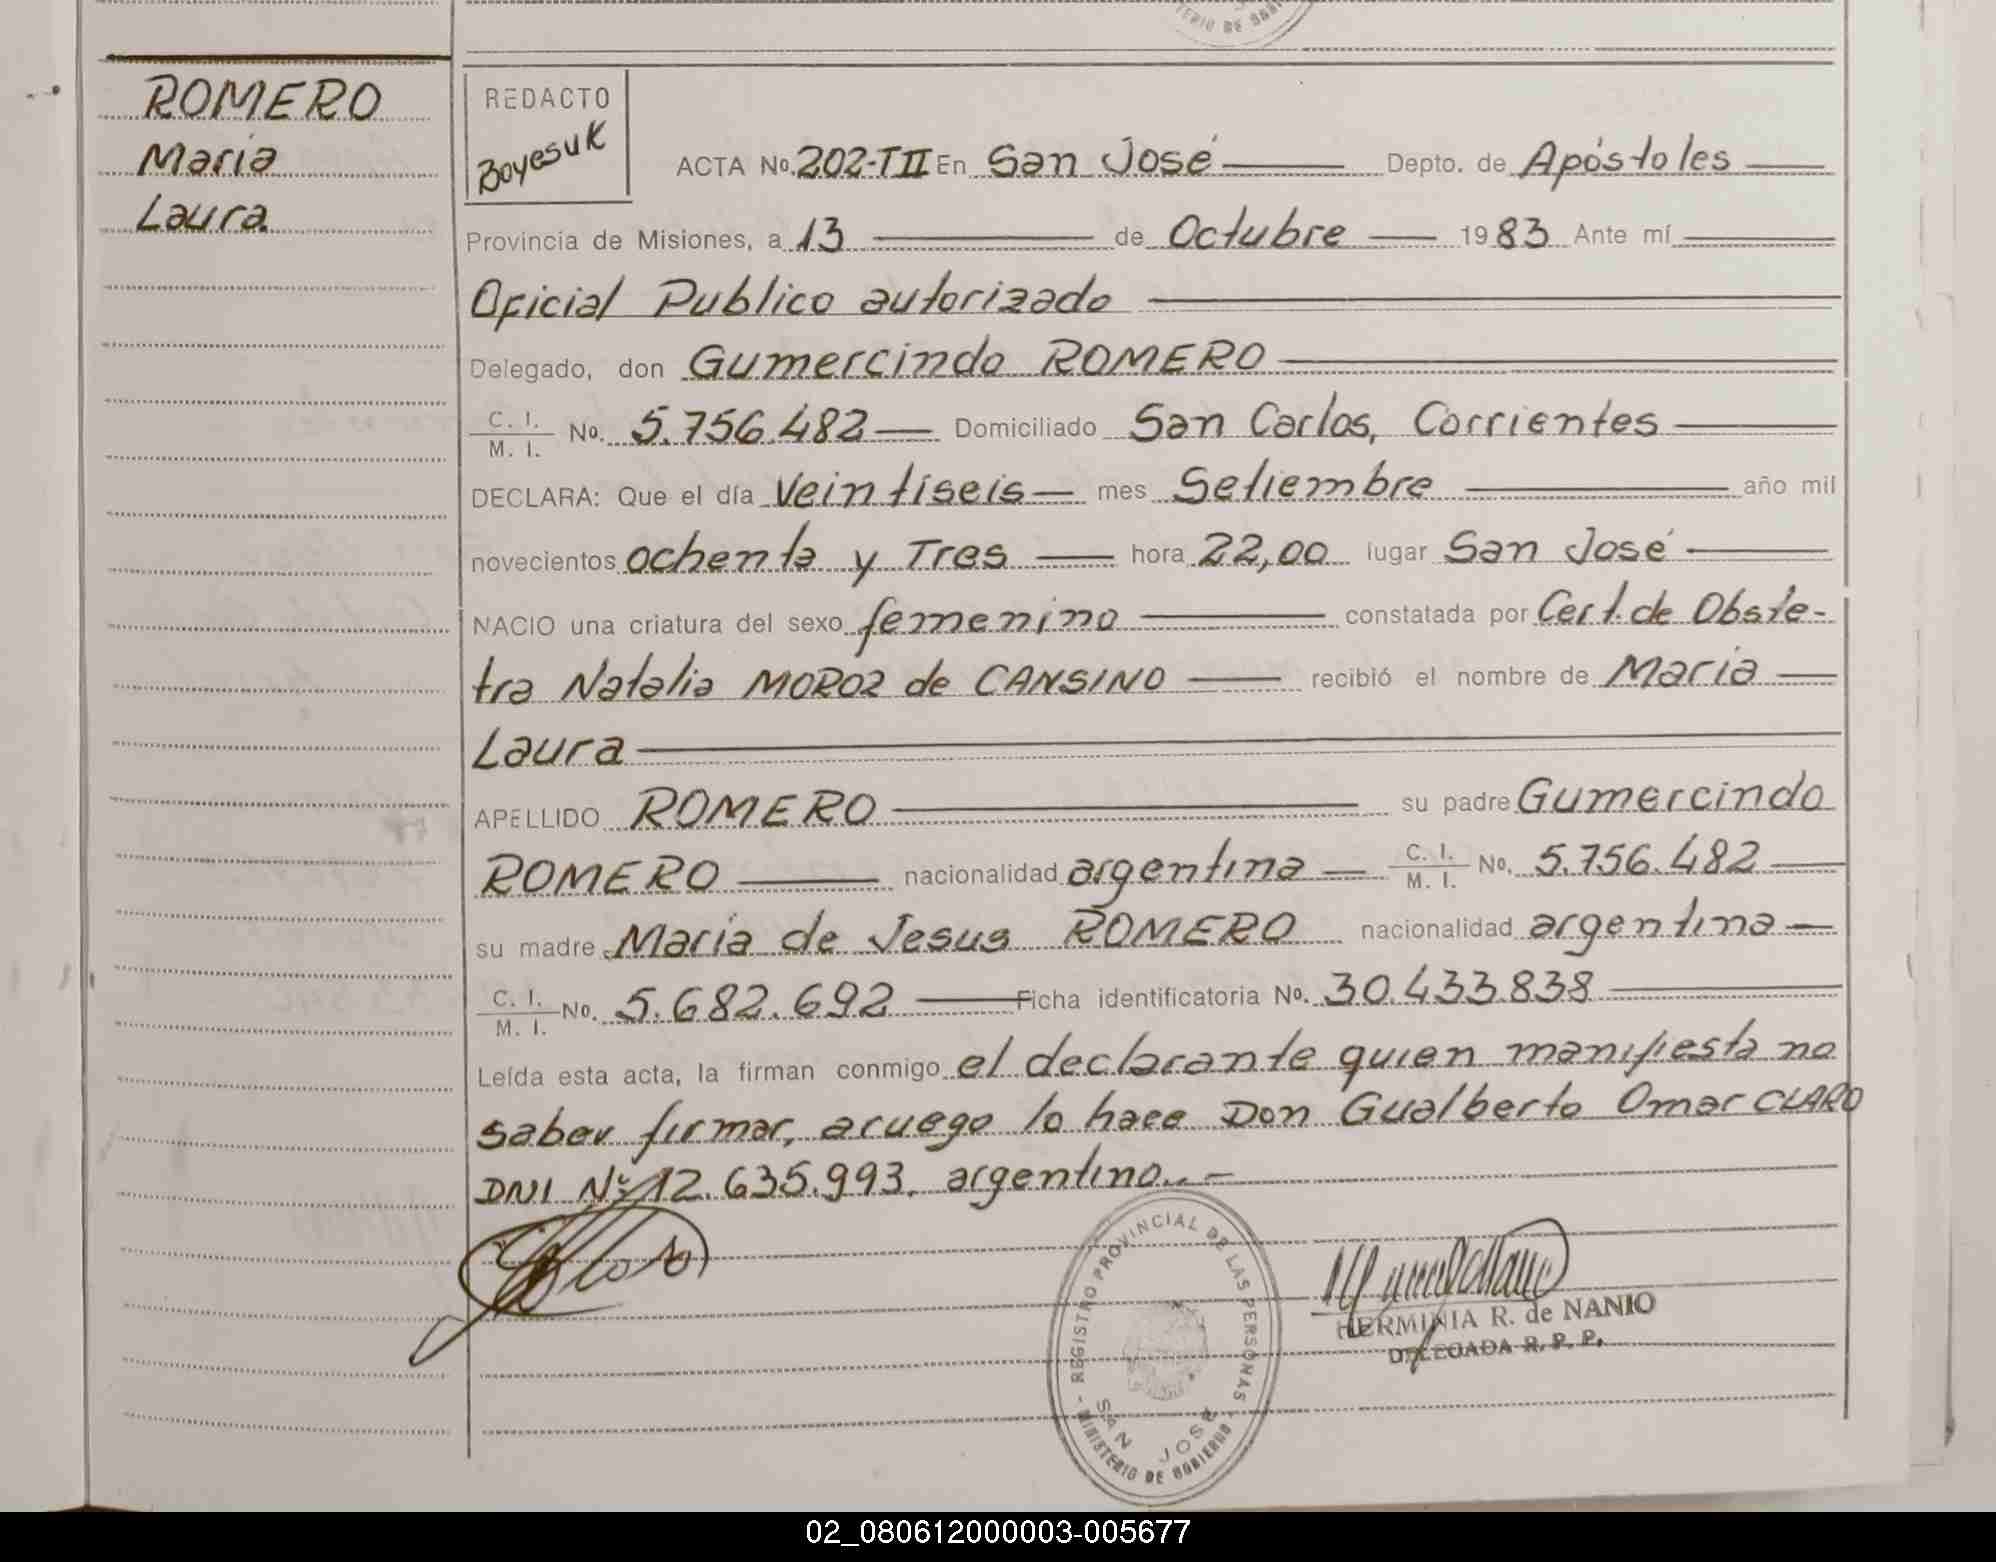 TERIO DE GOB
ROMERO
Maria
Laura.
REDACTO
Boyesuk
ACTA No. 202-TII En San José Depto. de Apóstoles
Provincia de Misiones, a 13 de Octubre 1983 Ante mí
Oficial Publico autorizado
Delegado, don Gumercindo ROMERO
C. I.
M. I. No. 5.756.482 Domiciliado San Carlos, Corrientes
DECLARA: Que el día Veintiseis mes Setiembre año mil
novecientos ochenta y Tres hora 22,00 lugar San José
NACIO una criatura del sexo femenino constatada por Cert. de Obste-
tra Natalia MOROZ de CANSINO recibió el nombre de Maria
Laura
APELLIDO ROMERO su padre Gumercindo
ROMERO nacionalidad argentina C. I. M. I. No. 5.756.482
su madre Maria de Jesus ROMERO nacionalidad argentina
C. I. M. I. No. 5.682.692 Ficha identificatoria No. 30.433.838
Leída esta acta, la firman conmigo el declarante quien manifiesta no
saber firmar, a ruego lo hace Don Gualberto Omar CLARO
DNI Nº 12.635.993. argentino.-
REGISTRO PROVINCIAL DE LAS PERSONAS
SAN JOSE
MINISTERIO DE GOBIERNO
HERMINIA R. de NANIO
DELEGADA R. P. P.
02_080612000003-005677